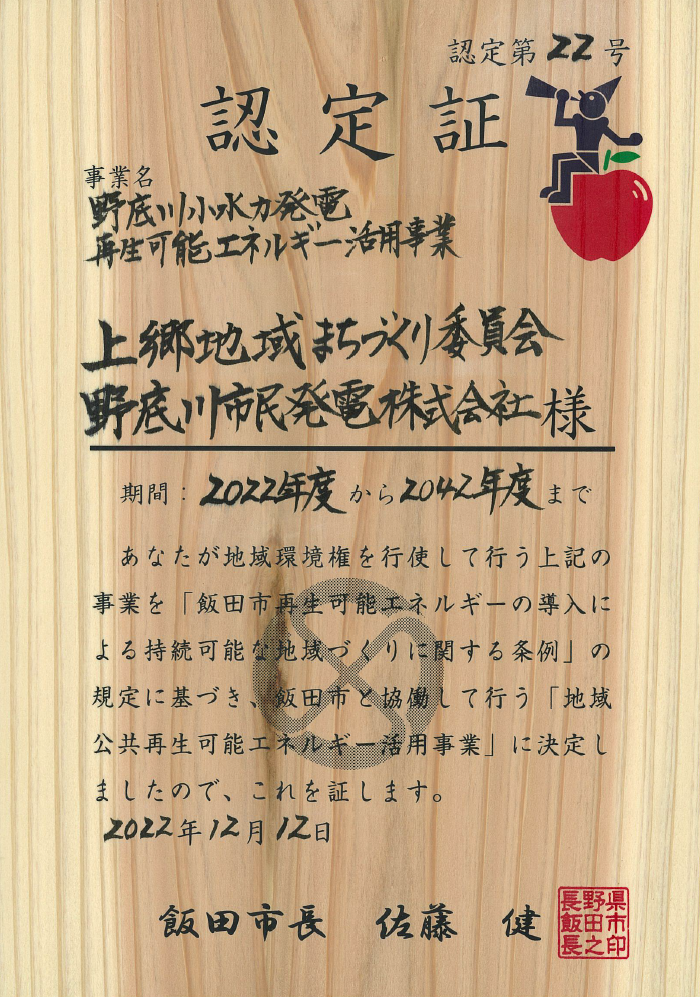 認定第22号
認定証
事業名
野底川小水力発電
再生可能エネルギー活用事業
上郷地域まちづくり委員会
野底川市民発電株式会社様
期間：2022年度から2042年度まで
あなたが地域環境権を行使して行う上記の
事業を「飯田市再生可能エネルギーの導入に
よる持続可能な地域づくりに関する条例」の
規定に基づき、飯田市と協働して行う「地域
公共再生可能エネルギー活用事業」に決定し
ましたので、これを証します。
2022年12月12日
飯田市長 佐藤 健
長野県
飯田市
長之印